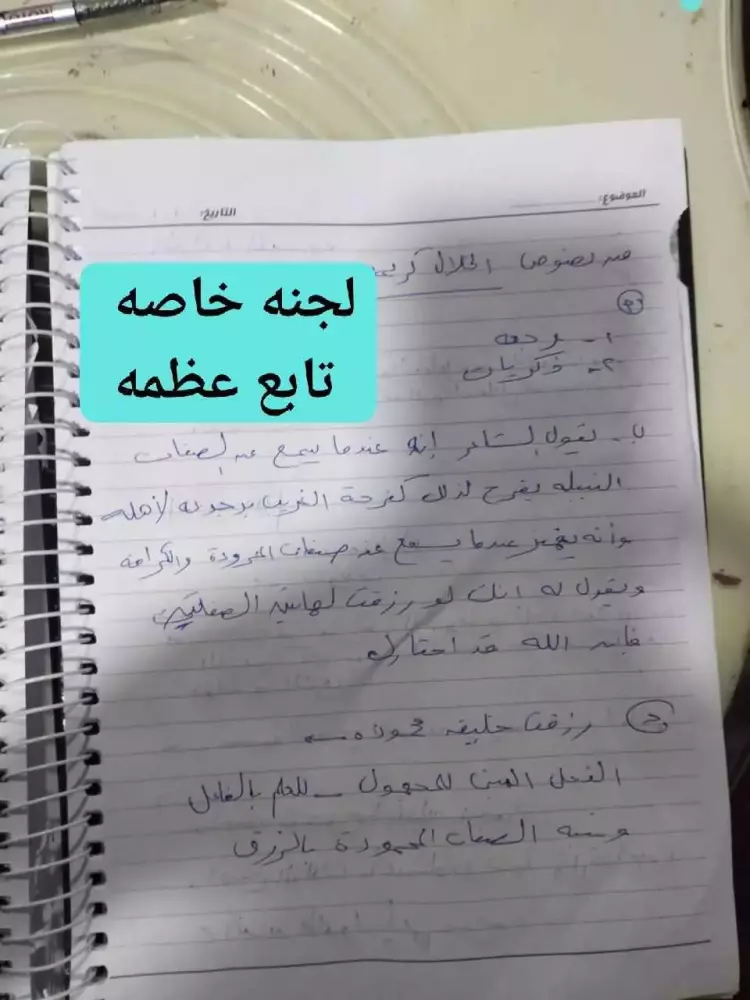 الموضوع:
التاريخ:
من نصوص الخلال كريم
لجنه خاصه
تابع عظمه
٢- ذكريات
ب- يقول الشاعر إنه عندما يسمع عن الصفات
النبيله يفرح لذلك كفرحة الغريب برجوعه لأهله
وأنه يهتز عندما يسمع عن صفات المحمودة والكرامه
ويقول له انك لو رزقت لهاتين الصفتين
فإن الله قد اختارك
رزقت خليقه محموده
الفعل المبنى للمجهول - للعلم بالفاعل
وشبه الصفات المحمودة بالرزق